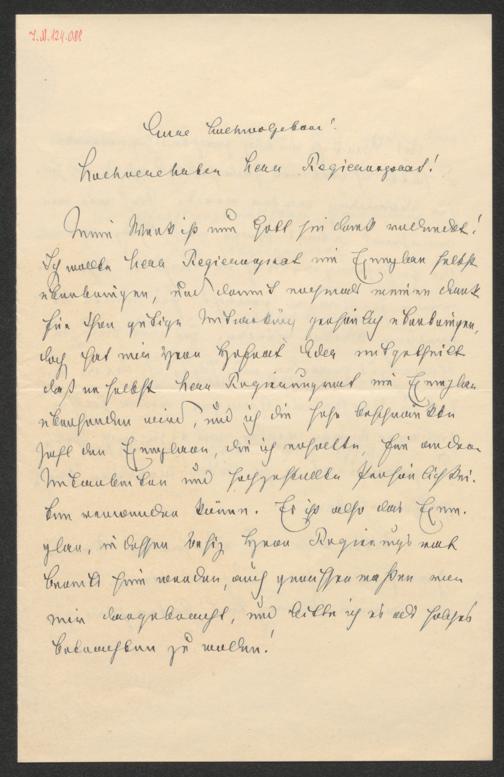 I.N.124.088
Euer Hochwolgeboren!
Hochverehrter Herr Regierungsrat!
Mein Werk ist nun Gott sei dank vollendet!
Ich wollte Herrn Regierungsrat ein Exemplar selbst
überbringen, und damit nochmals meinen Dank
für Ihre gütige Mitwirkung persönlich überbringen,
doch hat mir Herr Hofrat Eder mitgetheilt
daß er selbst Herrn Regierungsrat ein Exemplar
übersenden wird, und ich die sehr beschränkte
Zahl der Exemplare, die ich erhielte, für andere
Mitarbeiter und hochgestellte Persönlichkei-
ten verwenden könne. Es ist also das Exem-
plar, in dessen Besitz Herr Regierungsrat
bereits sein werden, auch gewissermaßen von
mir dargebracht, und bitte ich es als solches
betrachten zu wollen!